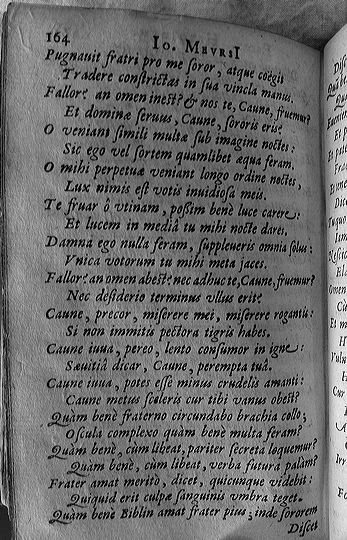 164 IO. MEVRSI
Pugnauit fratri pro me soror, atque coëgit
Tradere constrictas in sua vincla manus.
Fallor? an omen inest? & nos te, Caune, fruemur?
Et dominæ seruus, Caune, sororis eris?
O veniant simili multæ sub imagine noctes:
Sic ego vel sortem quamlibet æqua feram.
O mihi perpetuæ veniant longo ordine noctes,
Lux nimis est votis inuidiosa meis.
Te fruar ô vtinam, possim benè luce carere:
Et lucem in mediâ tu mihi nocte dares.
Damna ego nulla feram, suppleueris omnia solus:
Vnica votorum tu mihi meta jaces.
Fallor? an omen abest? nec adhuc te, Caune, fruemur?
Nec desiderio terminus vllus erit?
Caune, precor, miserere mei, miserere rogantis:
Si non immitis pectora tigris habes.
Caune iuua, pereo, lento consumor in igne:
Sæuitiâ dicar, Caune, perempta tuâ.
Caune iuua, potes esse minus crudelis amanti:
Caune metus sceleris cur tibi vanus obest?
Quàm benè fraterno circundabo brachia collo;
Oscula complexo quàm benè multa feram?
Quàm benè, cùm libeat, pariter secreta loquemur?
Quàm benè, cùm libeat, verba futura palàm?
Frater amat meritò, dicet, quicunque videbit:
Quiquid erit culpæ sanguinis vmbra teget.
Quàm benè Biblin amat frater pius; inde sororem
Discet